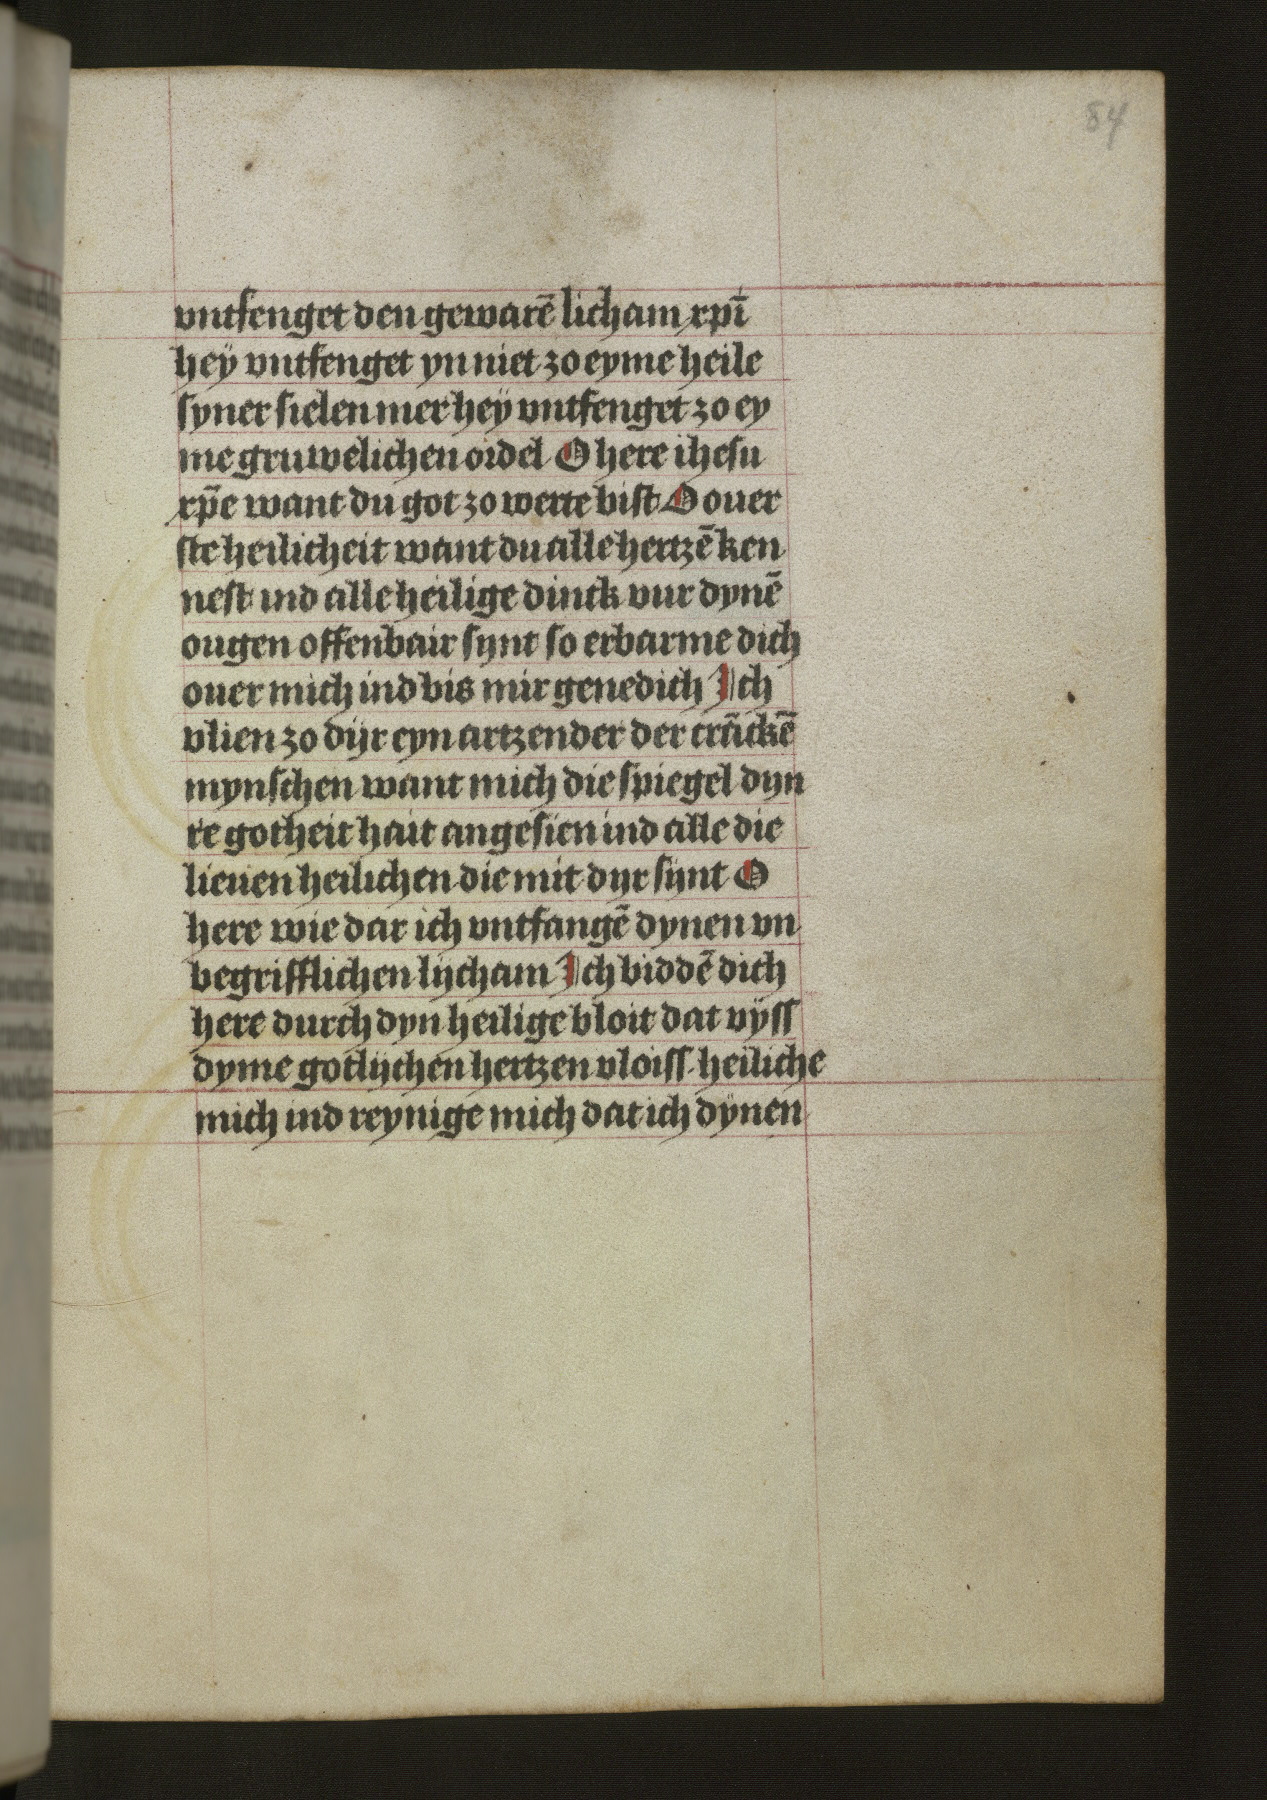 84
vntfenget den gewarē licham xpī
heÿ vntfenget yn niet zo eyme heile
syner sielen mer heÿ vntfenget zo ey
me gruwelichen oirdel O here ihesu
xp̄e want du got zo werre bist O ouer
ste heilicheit want du alle hertzē ken
nest ind alle heilige dinck vur dynē
ougen offenbair synt so erbarme dich
ouer mich ind bis mir genedich Ich
vlien zo dijr eyn artzender der crāckē
mynschen want mich die spiegel dyn
re gotheit hait angesien ind alle die
lieuen heilichen die mit dyr sijnt O
here wie dar ich vntfangē dynen vn
begrifflichen lijcham Ich biddē dich
here durch dyn heilige bloit dat vÿss
dyme gotlijchen hertzen vloiss heiliche
mich ind reynige mich dat ich dÿnen